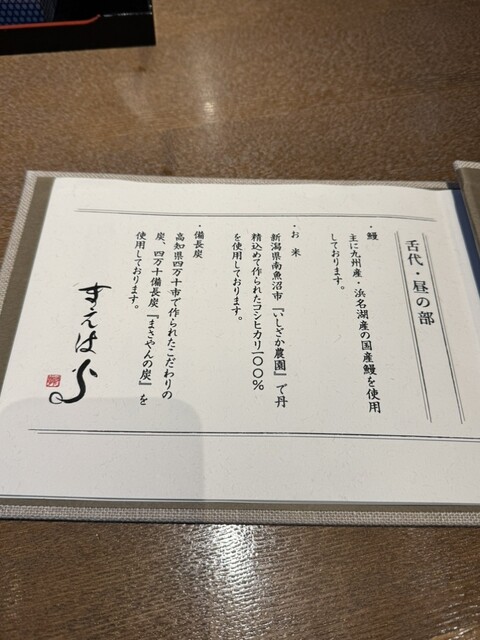 舌代・昼の部
・鰻
主に九州産・浜名湖産の国産鰻を使用
しております。
・お米
新潟県南魚沼市『いしざか農園』で丹
精込めて作られたコシヒカリ一〇〇%
を使用しております。
・備長炭
高知県四万十市で作られたこだわりの
炭、四万十備長炭『まさやんの炭』を
使用しております。
すえはら